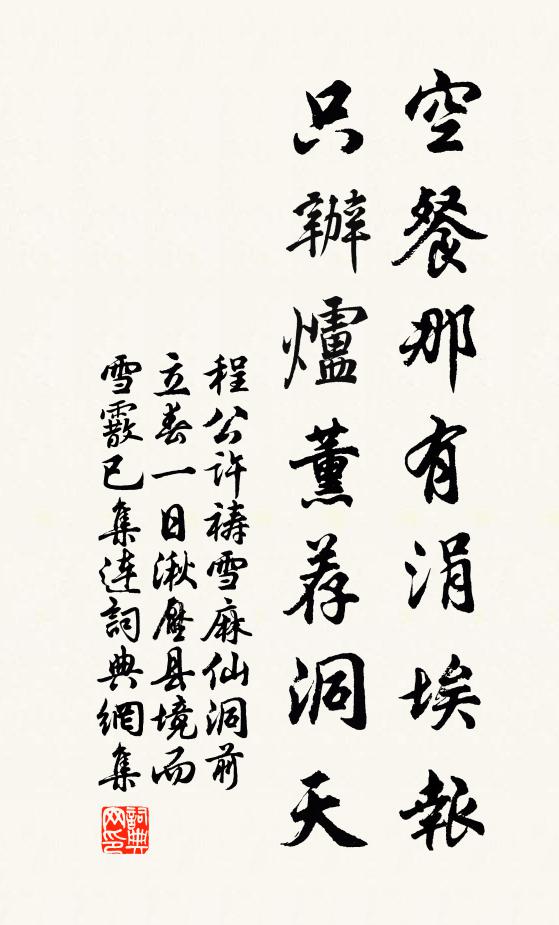 空餐那有涓埃報
只辦爐薰荐洞天
程公许禱雪麻仙洞前
立春一日湫壓县境而
雪霰已集连詞典網集
詞典網印